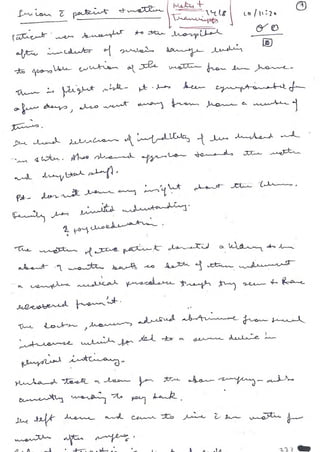 Session c̄ patient & mother
Notes + Transcripts 14/8
10/11/20
①
Patient was brought to the hospital
after incidents of serious damage leading
to possible eviction of the mother from her home.
There is flight risk. Pt. has been symptomatic for
a few days, also went away from home a number of
times.
She had delusions of infidelity of her husband and
in sister. Also showed aggression towards the mother
and hospital staff.
Pt. does not have any insight about the illness.
Family has limited understanding.
? psychoeducation.
The mother of the patient donated a kidney to her
about 9 months back so both of them underwent
a complex medical procedure though they seem to have
recovered from it.
The doctor, however, advised abstinence from sexual
intercourse which led to a severe decline in
physical intimacy.
Husband took a loan for the above surgery and is
currently working to pay back.
She left home and came to live c̄ her mother few
months after surgery.